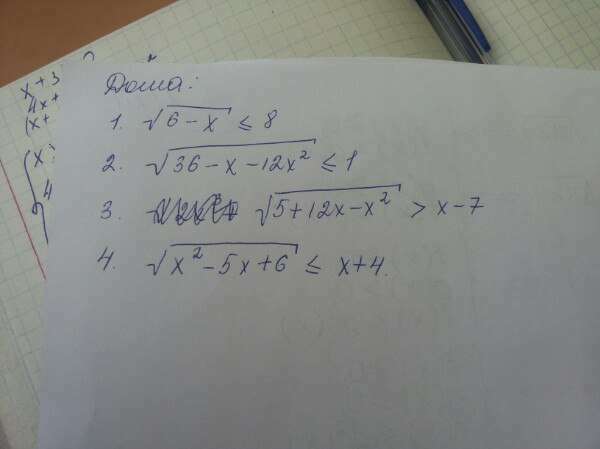 x + 3
4x +
(x +
x
4
Дома:
1. √(6 - x) ≤ 8
2. √(36 - x - 12x²) ≤ 1
3. √(5 + 12x - x²) > x - 7
4. √(x² - 5x + 6) ≤ x + 4.